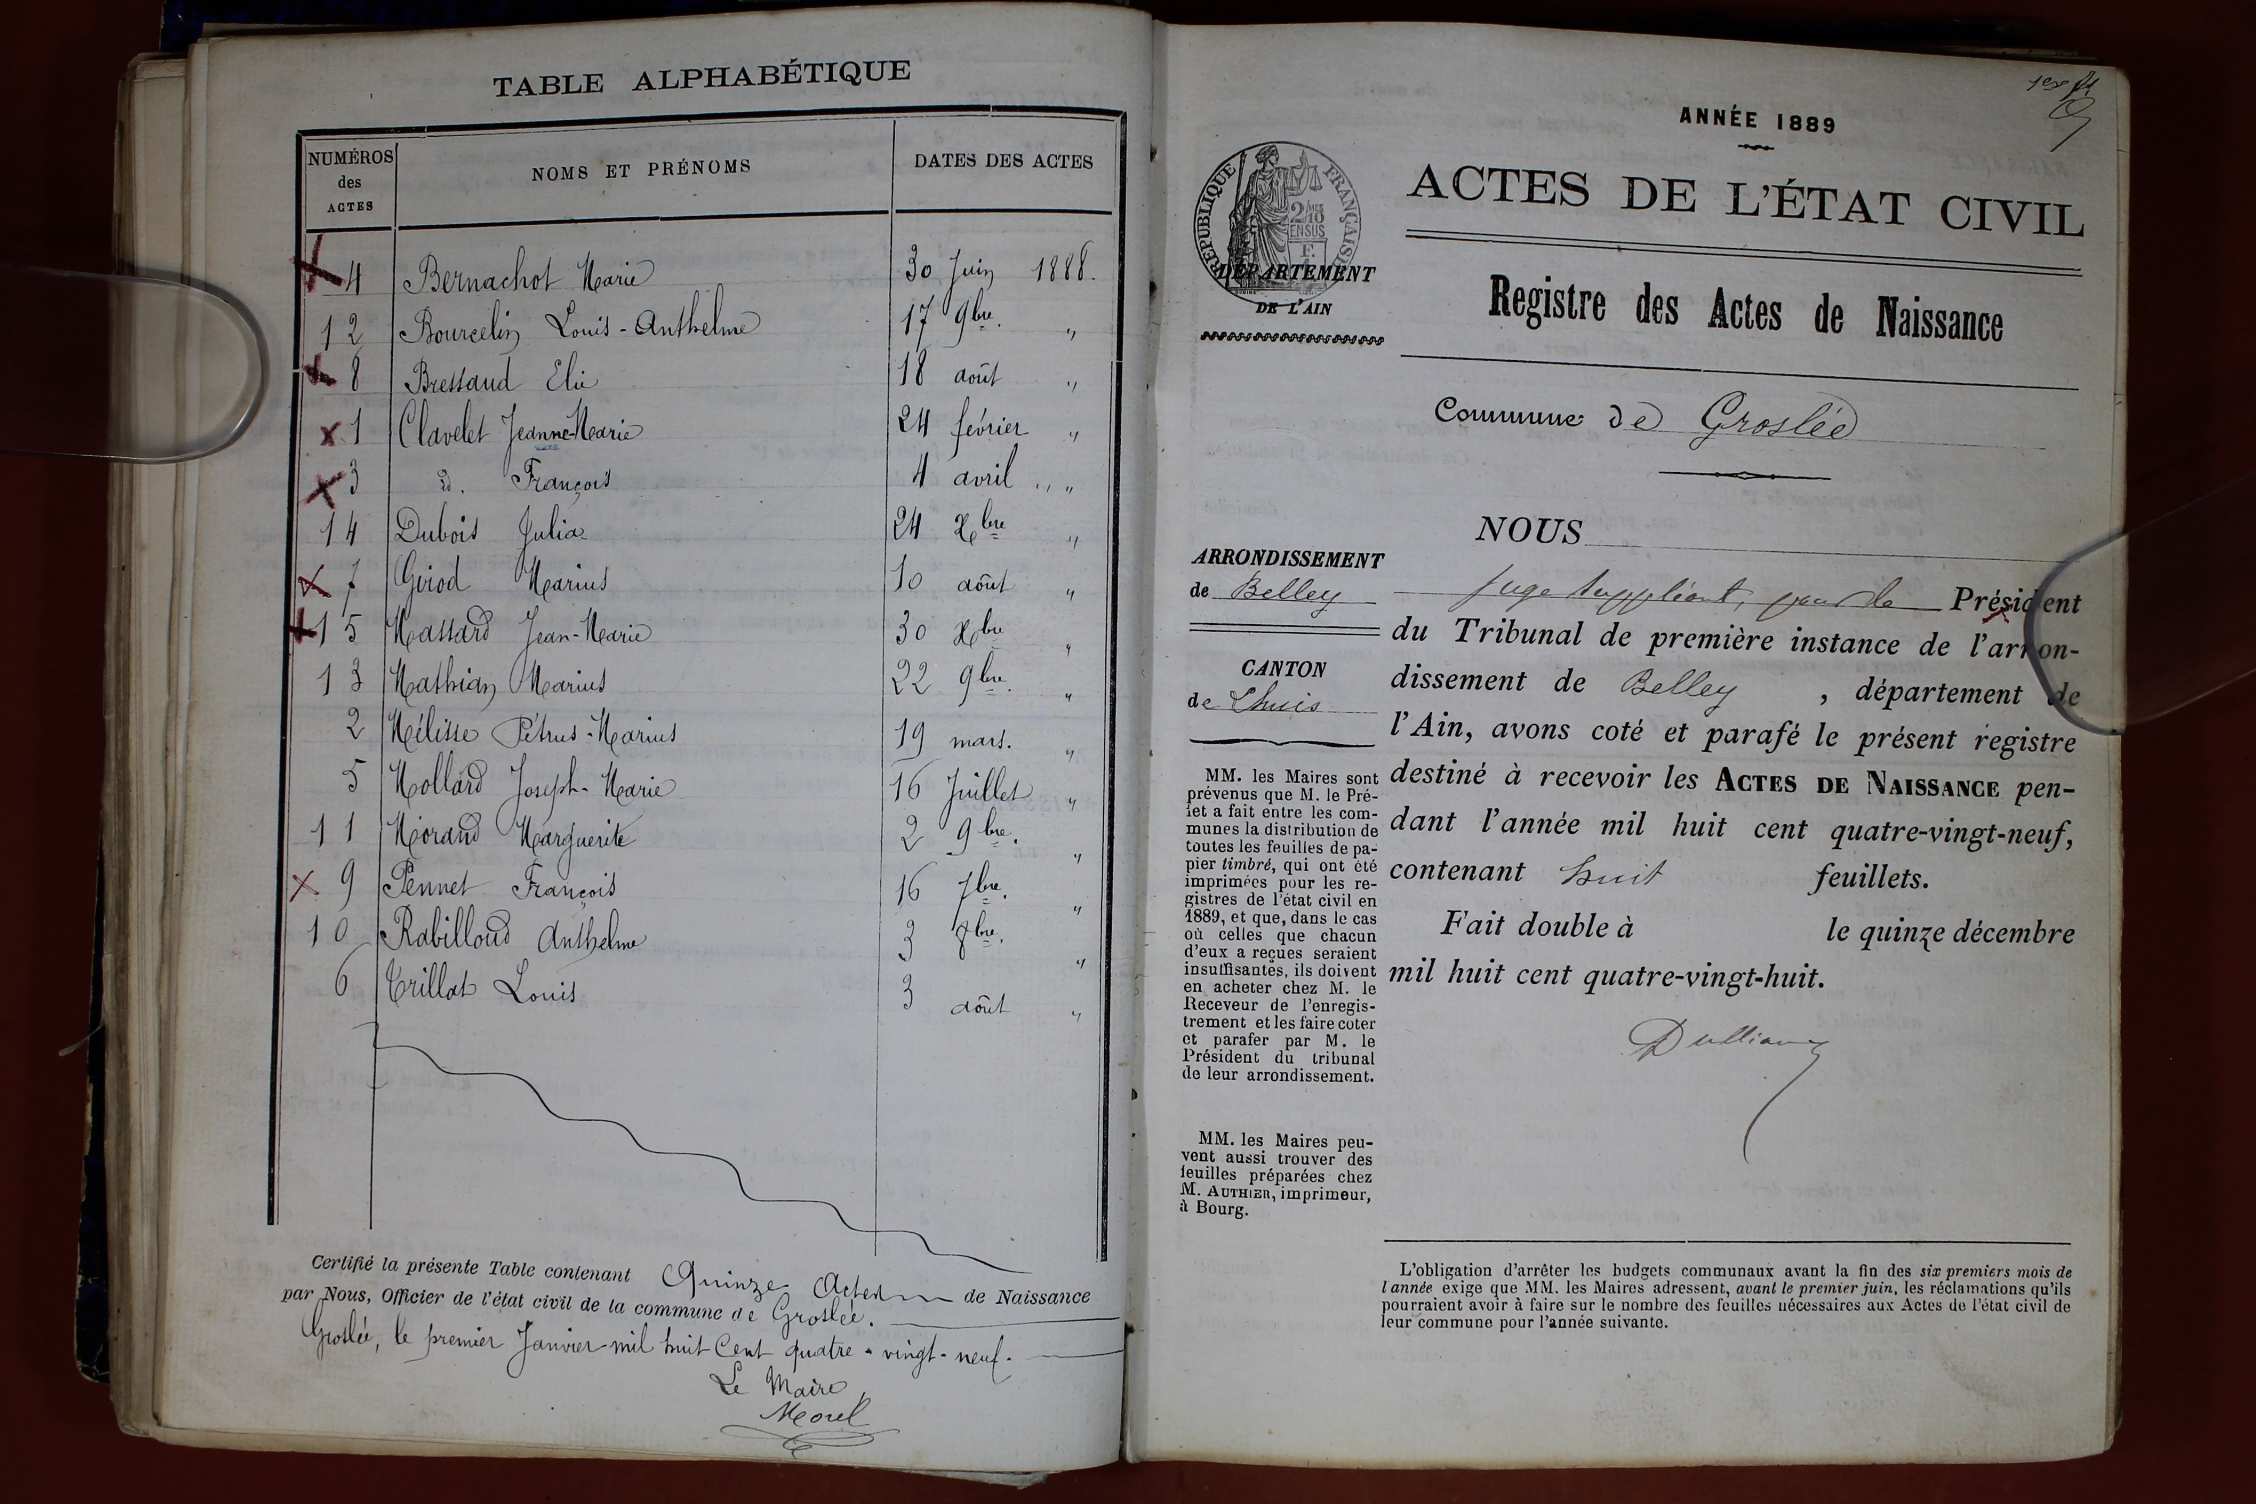 TABLE ALPHABÉTIQUE
NUMÉROS des ACTES
NOMS ET PRÉNOMS
DATES DES ACTES
4 Bernachot Marie 30 Juin 1888.
12 Bourcelin Louis-Anthelme 17 9bre. "
8 Bressaud Elie 18 août "
1 Clavelet Jeanne-Marie 24 février "
3 id. François 4 avril "
14 Dubois Julia 24 Xbre "
7 Girod Marius 10 août "
15 Massard Jean-Marie 30 Xbre "
13 Mathian Marius 22 9bre. "
2 Mélisse Pétrus-Marius 19 mars. "
5 Mollard Joseph-Marie 16 Juillet "
11 Morand Marguerite 2 9bre. "
9 Pennet François 16 7bre. "
10 Rabilloud Anthelme 3 8bre. "
6 Trillat Louis 3 août "
Certifié la présente Table contenant Quinze Actes de Naissance
par Nous, Officier de l'état civil de la commune de Groslée.
Groslée, le premier Janvier mil huit Cent quatre-vingt-neuf.
Le Maire
Morel
ANNÉE 1889
RÉPUBLIQUE FRANÇAISE
2/10
EN SUS
DÉPARTEMENT
DE L'AIN
ACTES DE L'ÉTAT CIVIL
Registre des Actes de Naissance
Commune de Groslée
ARRONDISSEMENT
de Belley
CANTON
de Lhuis
MM. les Maires sont
prévenus que M. le Pré-
fet a fait entre les com-
munes la distribution de
toutes les feuilles de pa-
pier timbré, qui ont été
imprimées pour les re-
gistres de l'état civil en
1889, et que, dans le cas
où celles que chacun
d'eux a reçues seraient
insuffisantes, ils doivent
en acheter chez M. le
Receveur de l'enregis-
trement et les faire coter
et parafer par M. le
Président du tribunal
de leur arrondissement.
MM. les Maires peu-
vent aussi trouver des
feuilles préparées chez
M. AUTHIER, imprimeur,
à Bourg.
NOUS
Juge suppléant, pour le Président
du Tribunal de première instance de l'arron-
dissement de Belley, département de
l'Ain, avons coté et parafé le présent registre
destiné à recevoir les ACTES DE NAISSANCE pen-
dant l'année mil huit cent quatre-vingt-neuf,
contenant huit feuillets.
Fait double à le quinze décembre
mil huit cent quatre-vingt-huit.
L'obligation d'arrêter les budgets communaux avant la fin des six premiers mois de
l'année exige que MM. les Maires adressent, avant le premier juin, les réclamations qu'ils
pourraient avoir à faire sur le nombre des feuilles nécessaires aux Actes de l'état civil de
leur commune pour l'année suivante.